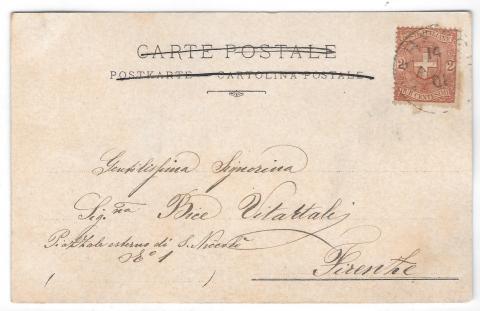 CARTE POSTALE
POSTKARTE — CARTOLINA POSTALE
2 2
DUE CENTESIMI
Gentilissima Signorina
Sig.na Bice Vitattalj
Piazzale esterno di S. Niccolò
N° 1
Firenze